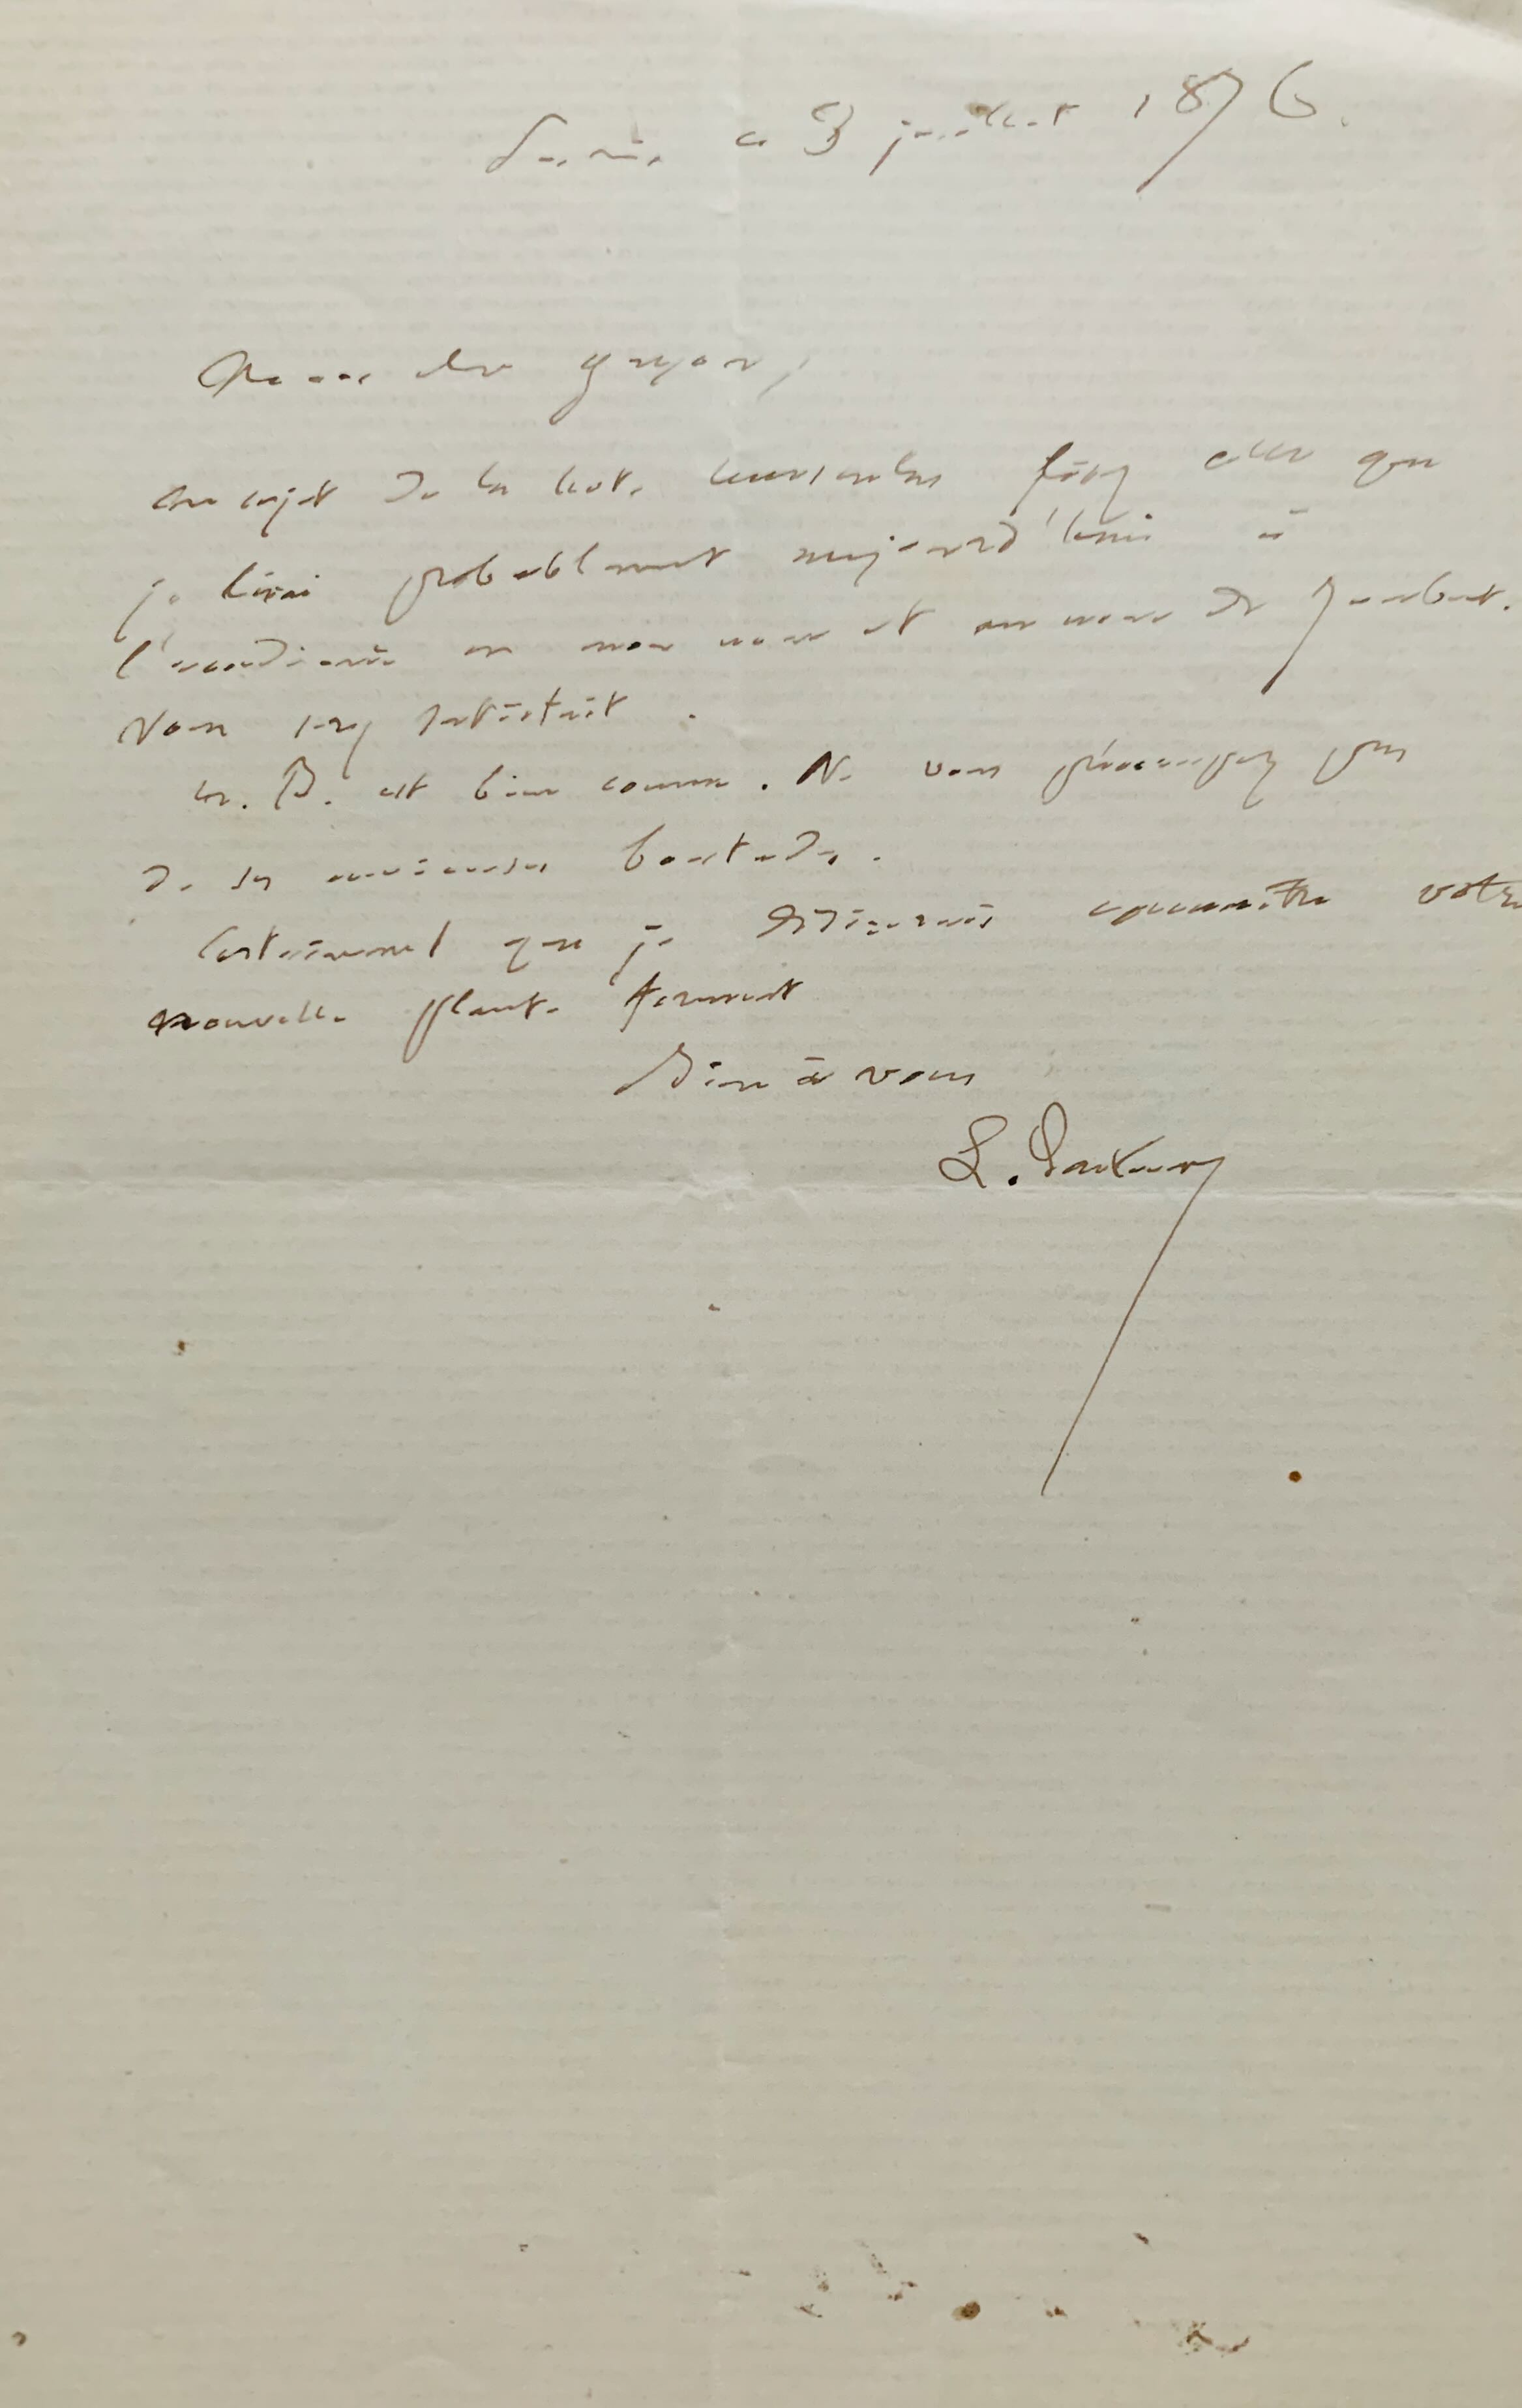 Paris, ce 3 juillet 1876.
Mon cher Gayon,
Au sujet de la note
je lirai probablement aujourd'hui à
l'académie en mon nom et au nom de Joubert.
Vous serez satisfait.
M. B. est bien connu. Ne vous préoccupez pas
de ses mauvaises boutades.
Certainement que je désirerais connaître votre
nouvelle plante ferment
Bien à vous
L. Pasteur